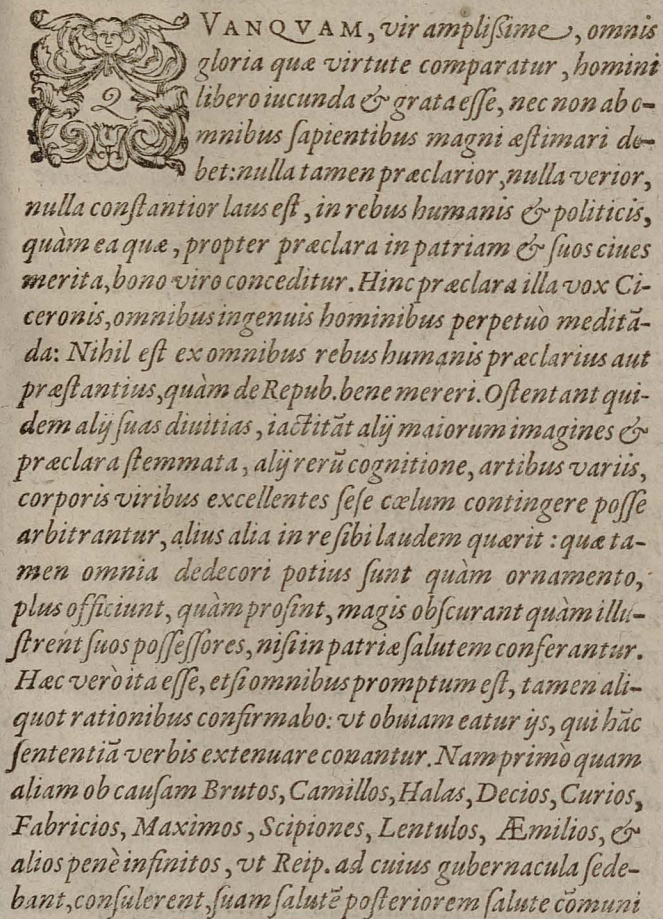 QVANQVAM, vir ampliſſime, omnis
gloria quæ virtute comparatur, homini
libero iucunda & grata eſſe, nec non ab o-
mnibus ſapientibus magni æſtimari de-
bet: nulla tamen præclarior, nulla verior,
nulla conſtantior laus eſt, in rebus humanis & politicis,
quàm ea quæ, propter præclara in patriam & ſuos ciues
merita, bono viro conceditur. Hinc præclara illa vox Ci-
ceronis, omnibus ingenuis hominibus perpetuò meditã-
da: Nihil eſt ex omnibus rebus humanis præclarius aut
præſtantius, quàm de Repub. bene mereri. Oſtentant qui-
dem alij ſuas diuitias, iactitãt alij maiorum imagines &
præclara ſtemmata, alij rerũ cognitione, artibus variis,
corporis viribus excellentes ſeſe cœlum contingere poſſe
arbitrantur, alius alia in re ſibi laudem quærit: quæ ta-
men omnia dedecori potius ſunt quàm ornamento,
plus officiunt, quàm proſint, magis obſcurant quàm illu-
ſtrent ſuos poſſeſſores, niſi in patriæ ſalutem conferantur.
Hæc verò ita eſſe, etſi omnibus promptum eſt, tamen ali-
quot rationibus confirmabo: vt obuiam eatur ijs, qui hãc
ſententiã verbis extenuare conantur. Nam primò quam
aliam ob cauſam Brutos, Camillos, Halas, Decios, Curios,
Fabricios, Maximos, Scipiones, Lentulos, Æmilios, &
alios penè infinitos, vt Reip. ad cuius gubernacula ſede-
bant, conſulerent, ſuam ſalutẽ poſteriorem ſalute cõmuni